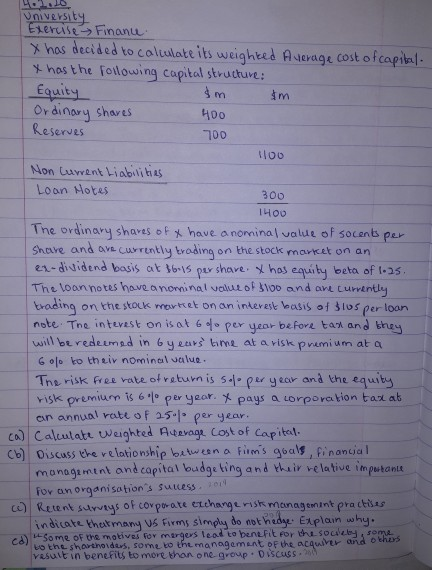 4.2.20
University
Exercise → Finance.
X has decided to calculate its weighted Average cost of capital.
X has the following capital structure:
Equity $m $m
Ordinary shares 400
Reserves 700
1100
Non Current Liabilities
Loan Notes 300
1400
The ordinary shares of X have a nominal value of 50cents per
share and are currently trading on the stock market on an
ex-dividend basis at $6.15 per share. X has equity beta of 1.25.
The loan notes have a nominal value of $100 and are currently
trading on the stock market on an interest basis of $105 per loan
note. The interest on is at 6% per year before tax and they
will be redeemed in 6 years' time at a risk premium at a
6% to their nominal value.
The risk free rate of return is 5% per year and the equity
risk premium is 6% per year. X pays a corporation tax at
an annual rate of 25% per year.
(a) Calculate Weighted Average Cost of Capital.
(b) Discuss the relationship between a firm's goals, financial
management and capital budgeting and their relative importance
for an organisation's success. 2019
(c) Recent surveys of corporate exchange risk management practises
indicate that many US firms simply do not hedge. Explain why.
(d) "Some of the motives for mergers lead to benefit for the society, some
to the shareholders, some to the management of the acquirer and others
result in benefits to more than one group. Discuss.